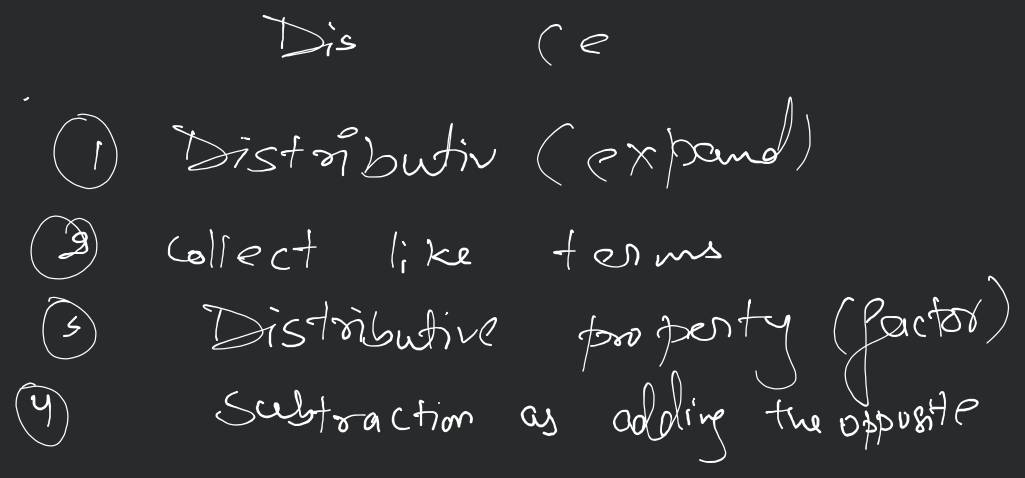 Dis (e
① Distributiv (expand)
② collect like terms
③ Distributive property (factor)
④ Subtraction as adding the opposite